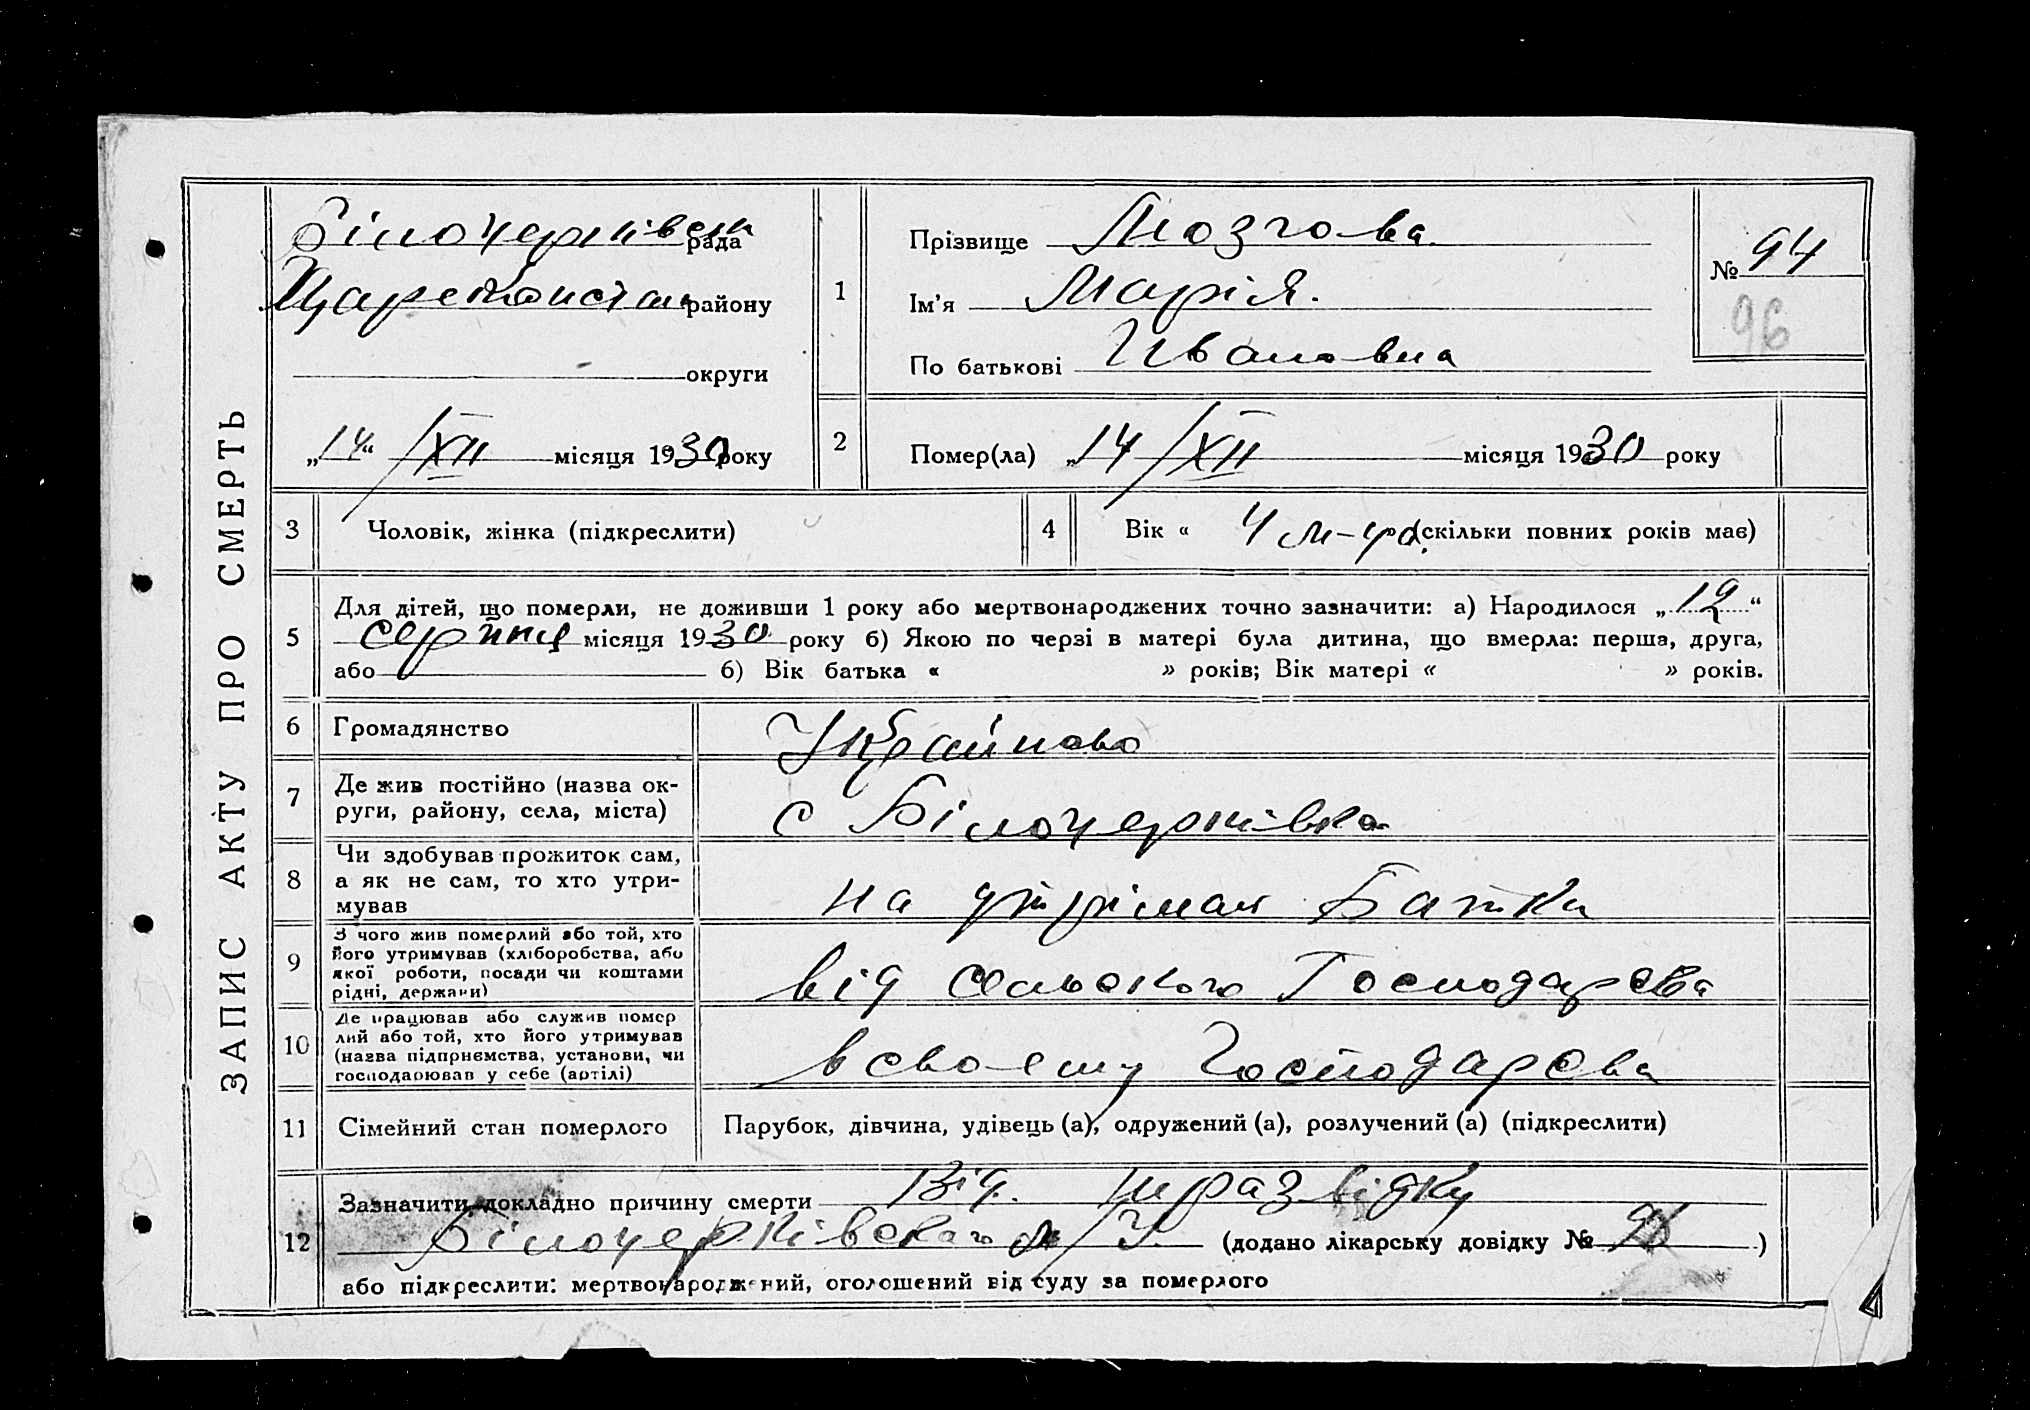 ЗАПИС АКТУ ПРО СМЕРТЬ
Білочерківськ рада
Цареконстан району
округи
„14“ /XII місяця 1930 року
1
Прізвище Мозгова
Ім'я Марія.
По батькові Ивановна
№ 94
96
2
Помер(ла) „14 /XII місяця 1930 року
3 Чоловік, жінка (підкреслити)
4 Вік « 4 м-ця (скільки повних років має)
5
Для дітей, що померли, не доживши 1 року або мертвонароджених точно зазначити: а) Народилося „12“
серпня місяця 1930 року б) Якою по черзі в матері була дитина, що вмерла: перша, друга,
або б) Вік батька « » років; Вік матері « » років.
6 Громадянство Украйнська
7 Де жив постійно (назва ок-
руги, району, села, міста)
с Білочерківка
8 Чи здобував прожиток сам,
а як не сам, то хто утри-
мував
на утріман Батьки
9 З чого жив померлий або той, хто
його утримував (хліборобства, або
якої роботи, посади чи коштами
рідні, держави)
від сельского Господарства
10 Де працював або служив помер
лий або той, хто його утримував
(назва підприємства, установи, чи
господарював у себе (артілі)
в своему Господарсва
11 Сімейний стан померлого
Парубок, дівчина, удівець (а), одружений (а), розлучений (а) (підкреслити)
12
Зазначити докладно причину смерти Від.
Білочерківского (додано лікарську довідку № )
або підкреслити: мертвонароджений, оголошений від суду за померлого